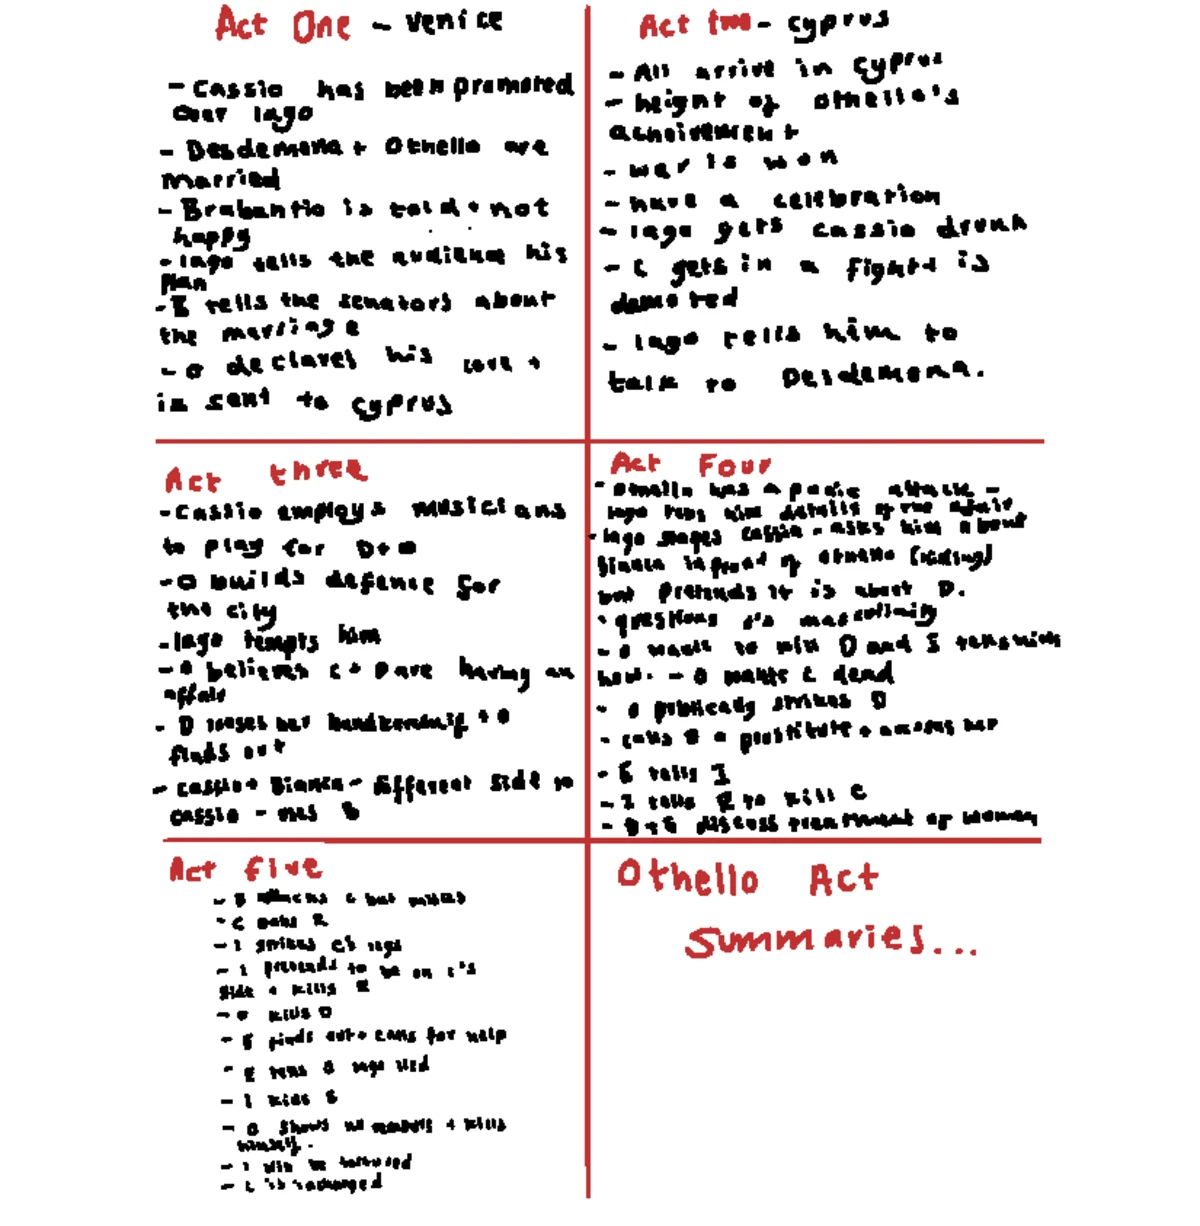 Act One - Venice
- Cassio has been promoted
over Iago
- Desdemona + Othello are
Married
- Brabantio is told + not
happy
- Iago tells the audience his
Plan
- B tells the senators about
the marriage
- O declares his love +
is sent to Cyprus
Act two - Cyprus
- All arrive in Cyprus
- height of Othello's
acheivement
- war is won
- have a celebration
- Iago gets Cassio drunk
- C gets in a fight + is
demoted
- Iago tells him to
talk to Desdemona.
Act three
- Cassio employs musicians
to play for D + O
- O builds defence for
the city
- Iago tempts him
- O believes C + D are having an
affair
- D looses her handkercheif + O
finds out
- Cassio + Bianca - different side to
Cassio - uses B
Act Four
- Othello has a panic attack -
Iago tells him details of the affair
- Iago stages Cassio - asks him about
Bianca infront of Othello (hiding)
but pretends it is about D.
- questions O's masculinity
- O wants to kill D and I tells him
how. - O wants C dead
- O publically strikes D
- calls D a prostitute + accuses her
- E tells I
- I tells R to kill C
- D + E discuss treatment of women
Act five
- R attacks C but misses
- C stabs R
- I strikes C's legs
- I pretends to be on C's
side + kills R
- O kills D
- E finds out + calls for help
- E tells O Iago lied
- I kills E
- O shows no remorse + kills
himself.
- I will be tortured
- C is
Othello Act
Summaries...